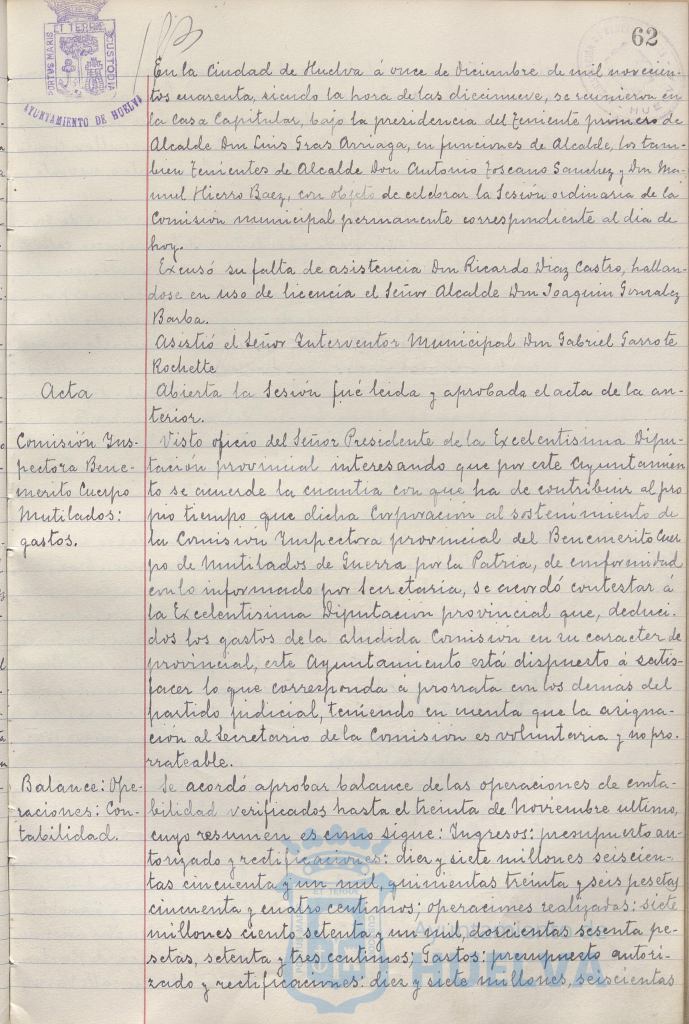 62
PORTUS MARIS
ET TERRE
CUSTODIA
AYUNTAMIENTO DE HUELVA
En la Ciudad de Huelva á once de Diciembre de mil novecien-
tos cuarenta, siendo la hora de las diecinueve, se reunieron en
la Casa Capitular, bajo la presidencia del Teniente primero de
Alcalde Don Luis Gras Arriaga, en funciones de Alcalde, los tam-
bien Tenientes de Alcalde Don Antonio Toscano Sanchez y Don Ma-
nuel Hierro Baez, con objeto de celebrar la Sesión ordinaria de la
Comisión municipal permanente correspondiente al dia de
hoy.
Excusó su falta de asistencia Don Ricardo Diaz Castro, hallan-
dose en uso de licencia el Señor Alcalde Don Joaquin Gonzalez
Barba.
Asistió el Señor Interventor Municipal Don Gabriel Garrote
Rochette
Acta
Abierta la Sesión fué leida y aprobada el acta de la an-
terior.
Comisión Ins-
pectora Bene-
merito Cuerpo
Mutilados:
gastos.
Visto oficio del Señor Presidente de la Excelentisima Dipu-
tación provincial interesando que por este Ayuntamien
to se acuerde la cuantia con que ha de contribuir al pro
pio tiempo que dicha Corporación al sostenimiento de
la Comisión Inspectora provincial del Benemerito Cuer
po de Mutilados de Guerra por la Patria, de conformidad
con lo informado por Secretaría, se acordó contestar á
la Excelentisima Diputación provincial que, deduci-
dos los gastos de la aludida Comisión en su caracter de
provincial, este Ayuntamiento está dispuesto á satis-
facer lo que corresponda á prorrata con los demás del
partido judicial, teniendo en cuenta que la asigna-
ción al Secretario de la Comisión es voluntaria y no pro-
rrateable.
Balance: Ope-
raciones: Con-
tabilidad.
Se acordó aprobar balance de las operaciones de conta-
bilidad verificados hasta el treinta de Noviembre ultimo,
cuyo resumen es como sigue: Ingresos: presupuesto au-
torizado y rectificaciones: diez y siete millones seiscien-
tas cincuenta y un mil, quinientas treinta y seis pesetas
cincuenta y cuatro centimos; operaciones realizadas: siete
millones ciento setenta y un mil, doscientas sesenta pe-
setas, setenta y tres centimos; Gastos: presupuesto autori-
zado y rectificaciones: diez y siete millones, seiscientas
Ayuntamiento de
HUELVA